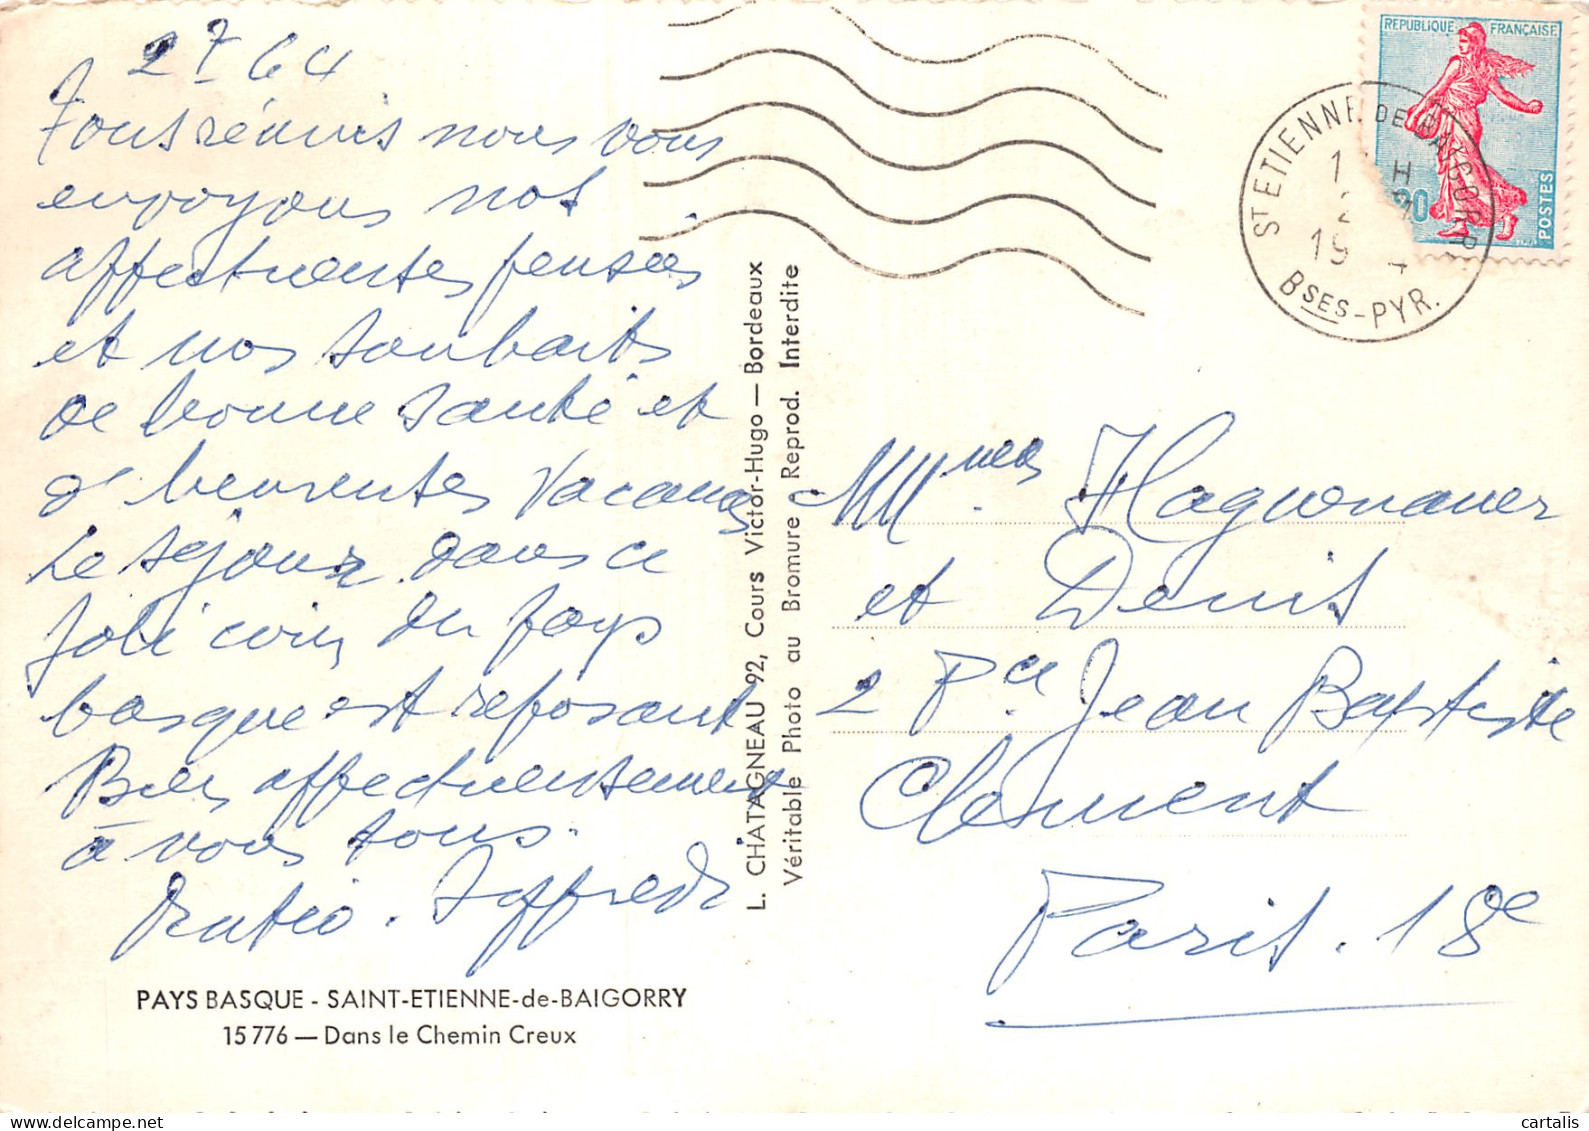 2 7 64
Tous réunis nous vous
envoyons nos
affectueuses pensées
et nos souhaits
de bonne santé et
d'heureuses vacances
Le séjour dans ce
joli coin du pays
basque est reposant
Bien affectueusement
à vous tous.
PAYS BASQUE - SAINT-ETIENNE-de-BAIGORRY
15 776 — Dans le Chemin Creux
L. CHATAGNEAU 92, Cours Victor-Hugo — Bordeaux
Véritable Photo au Bromure Reprod. Interdite
REPUBLIQUE FRANÇAISE
POSTES
ST ETIENNE DE BAIGORRY
BSES-PYR.
MMmes Haguenauer
et Denis
2 Pce Jean Baptiste
Clement
Paris. 18e
cartalis